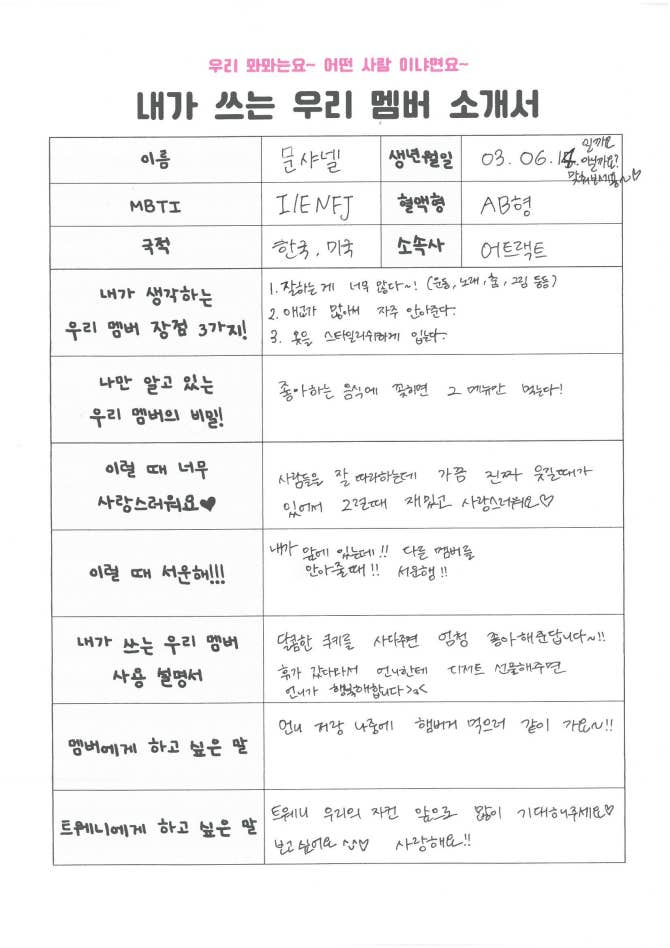 우리 와와는요~ 어떤 사람 이냐면요~
내가 쓰는 우리 멤버 소개서
이름 문샤넬 생년월일 03. 06. 일까요
아닐까요?
맞춰보세용~♡
MBTI I/ENFJ 혈액형 AB형
국적 한국, 미국 소속사 어트랙트
내가 생각하는
우리 멤버 장점 3가지!
1. 잘하는게 너무 많다~! (운동, 노래, 춤, 그림 등등)
2. 애교가 많아서 자주 안아준다.
3. 옷을 스타일리쉬하게 입는다.
나만 알고 있는
우리 멤버의 비밀!
좋아하는 음식에 꽂히면 그 메뉴만 먹는다!
이럴 때 너무
사랑스러워요♥
사람들을 잘 따라하는데 가끔 진짜 웃길때가
있어서 그런때 재밌고 사랑스러워요♡
이럴 때 서운해!!!
내가 앞에 있는데!! 다른 멤버를
안아줄때!! 서운행!!
내가 쓰는 우리 멤버
사용 설명서
달콤한 쿠키를 사다주면 엄청 좋아해준답니다~!!
휴가 갔다와서 언니한테 디저트 선물해주면
언니가 행복해합니다>_<
멤버에게 하고 싶은 말
언니 저랑 나중에 햄버거 먹으러 같이 가요~!!
트웨니에게 하고 싶은 말
트웨니 우리의 자컨 앞으로 많이 기대해주세요♡
보고싶어요 ♡ 사랑해요!!